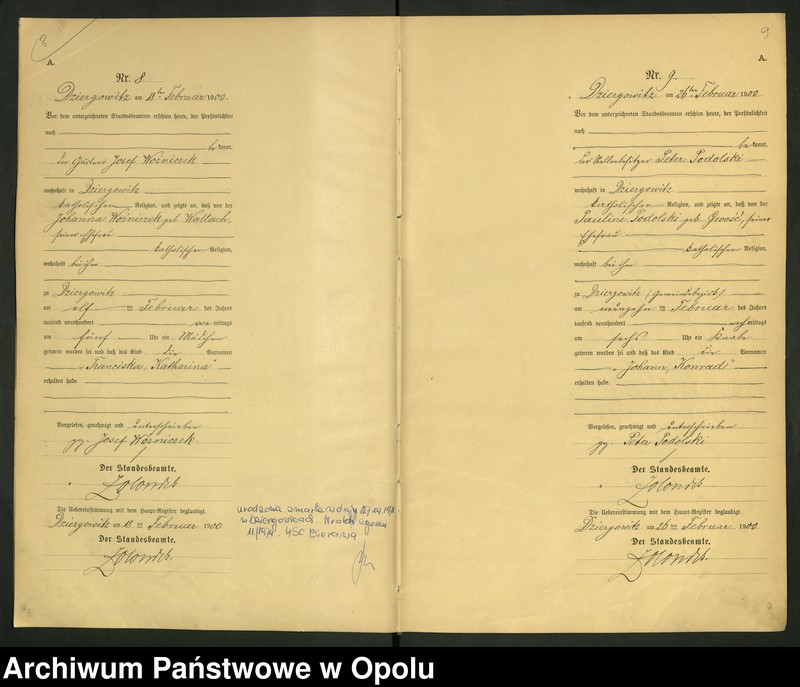 8
A.
Nr. 8
Dziergowitz am 11ten Februar 1900.
Vor dem unterzeichneten Standesbeamten erschien heute, der Persönlichkeit
nach
bekannt,
der Josef Wożniczek
wohnhaft in Dziergowitz
katholischer Religion, und zeigte an, daß von der
Johanna Wożniczek geb. Wallach,
seiner Ehefrau
katholischer Religion,
wohnhaft bei ihm
zu Dziergowitz
am elf ten Februar des Jahres
tausend neunhundert mittags
um fünf Uhr ein Mädchen
geboren worden sei und daß das Kind die Vornamen
„Franciska, Katharina"
erhalten habe.
Vorgelesen, genehmigt und unterschrieben
gz. Josef Wożniczek
Der Standesbeamte.
Zolondek
Die Uebereinstimmung mit dem Haupt-Register beglaubigt.
Dziergowitz am 11 ten Februar 1900
Der Standesbeamte.
Zolondek.
urodzona zmarła 27.02.197
w Dziergowicach. Nr aktu zgonu
11/197 USC Bierawa
9
A.
Nr. 9.
Dziergowitz am 26ten Februar 1900.
Vor dem unterzeichneten Standesbeamten erschien heute, der Persönlichkeit
nach
bekannt,
der Stellenbesitzer Peter Podolski
wohnhaft in Dziergowitz
katholischer Religion, und zeigte an, daß von der
Pauline Podolski geb. Gwosć, seiner
Ehefrau
katholischer Religion,
wohnhaft bei ihm
zu Dziergowitz (Gemeindebezirk)
am neunzehn ten Februar des Jahres
tausend neunhundert nachmittags
um sechs Uhr ein Knabe
geboren worden sei und daß das Kind die Vornamen
„Johann, Konrad"
erhalten habe.
Vorgelesen, genehmigt und unterschrieben
gz. Peter Podolski
Der Standesbeamte.
Zolondek.
Die Uebereinstimmung mit dem Haupt-Register beglaubigt.
Dziergowitz am 26 ten Februar 1900.
Der Standesbeamte.
Zolondek.
Archiwum Państwowe w Opolu